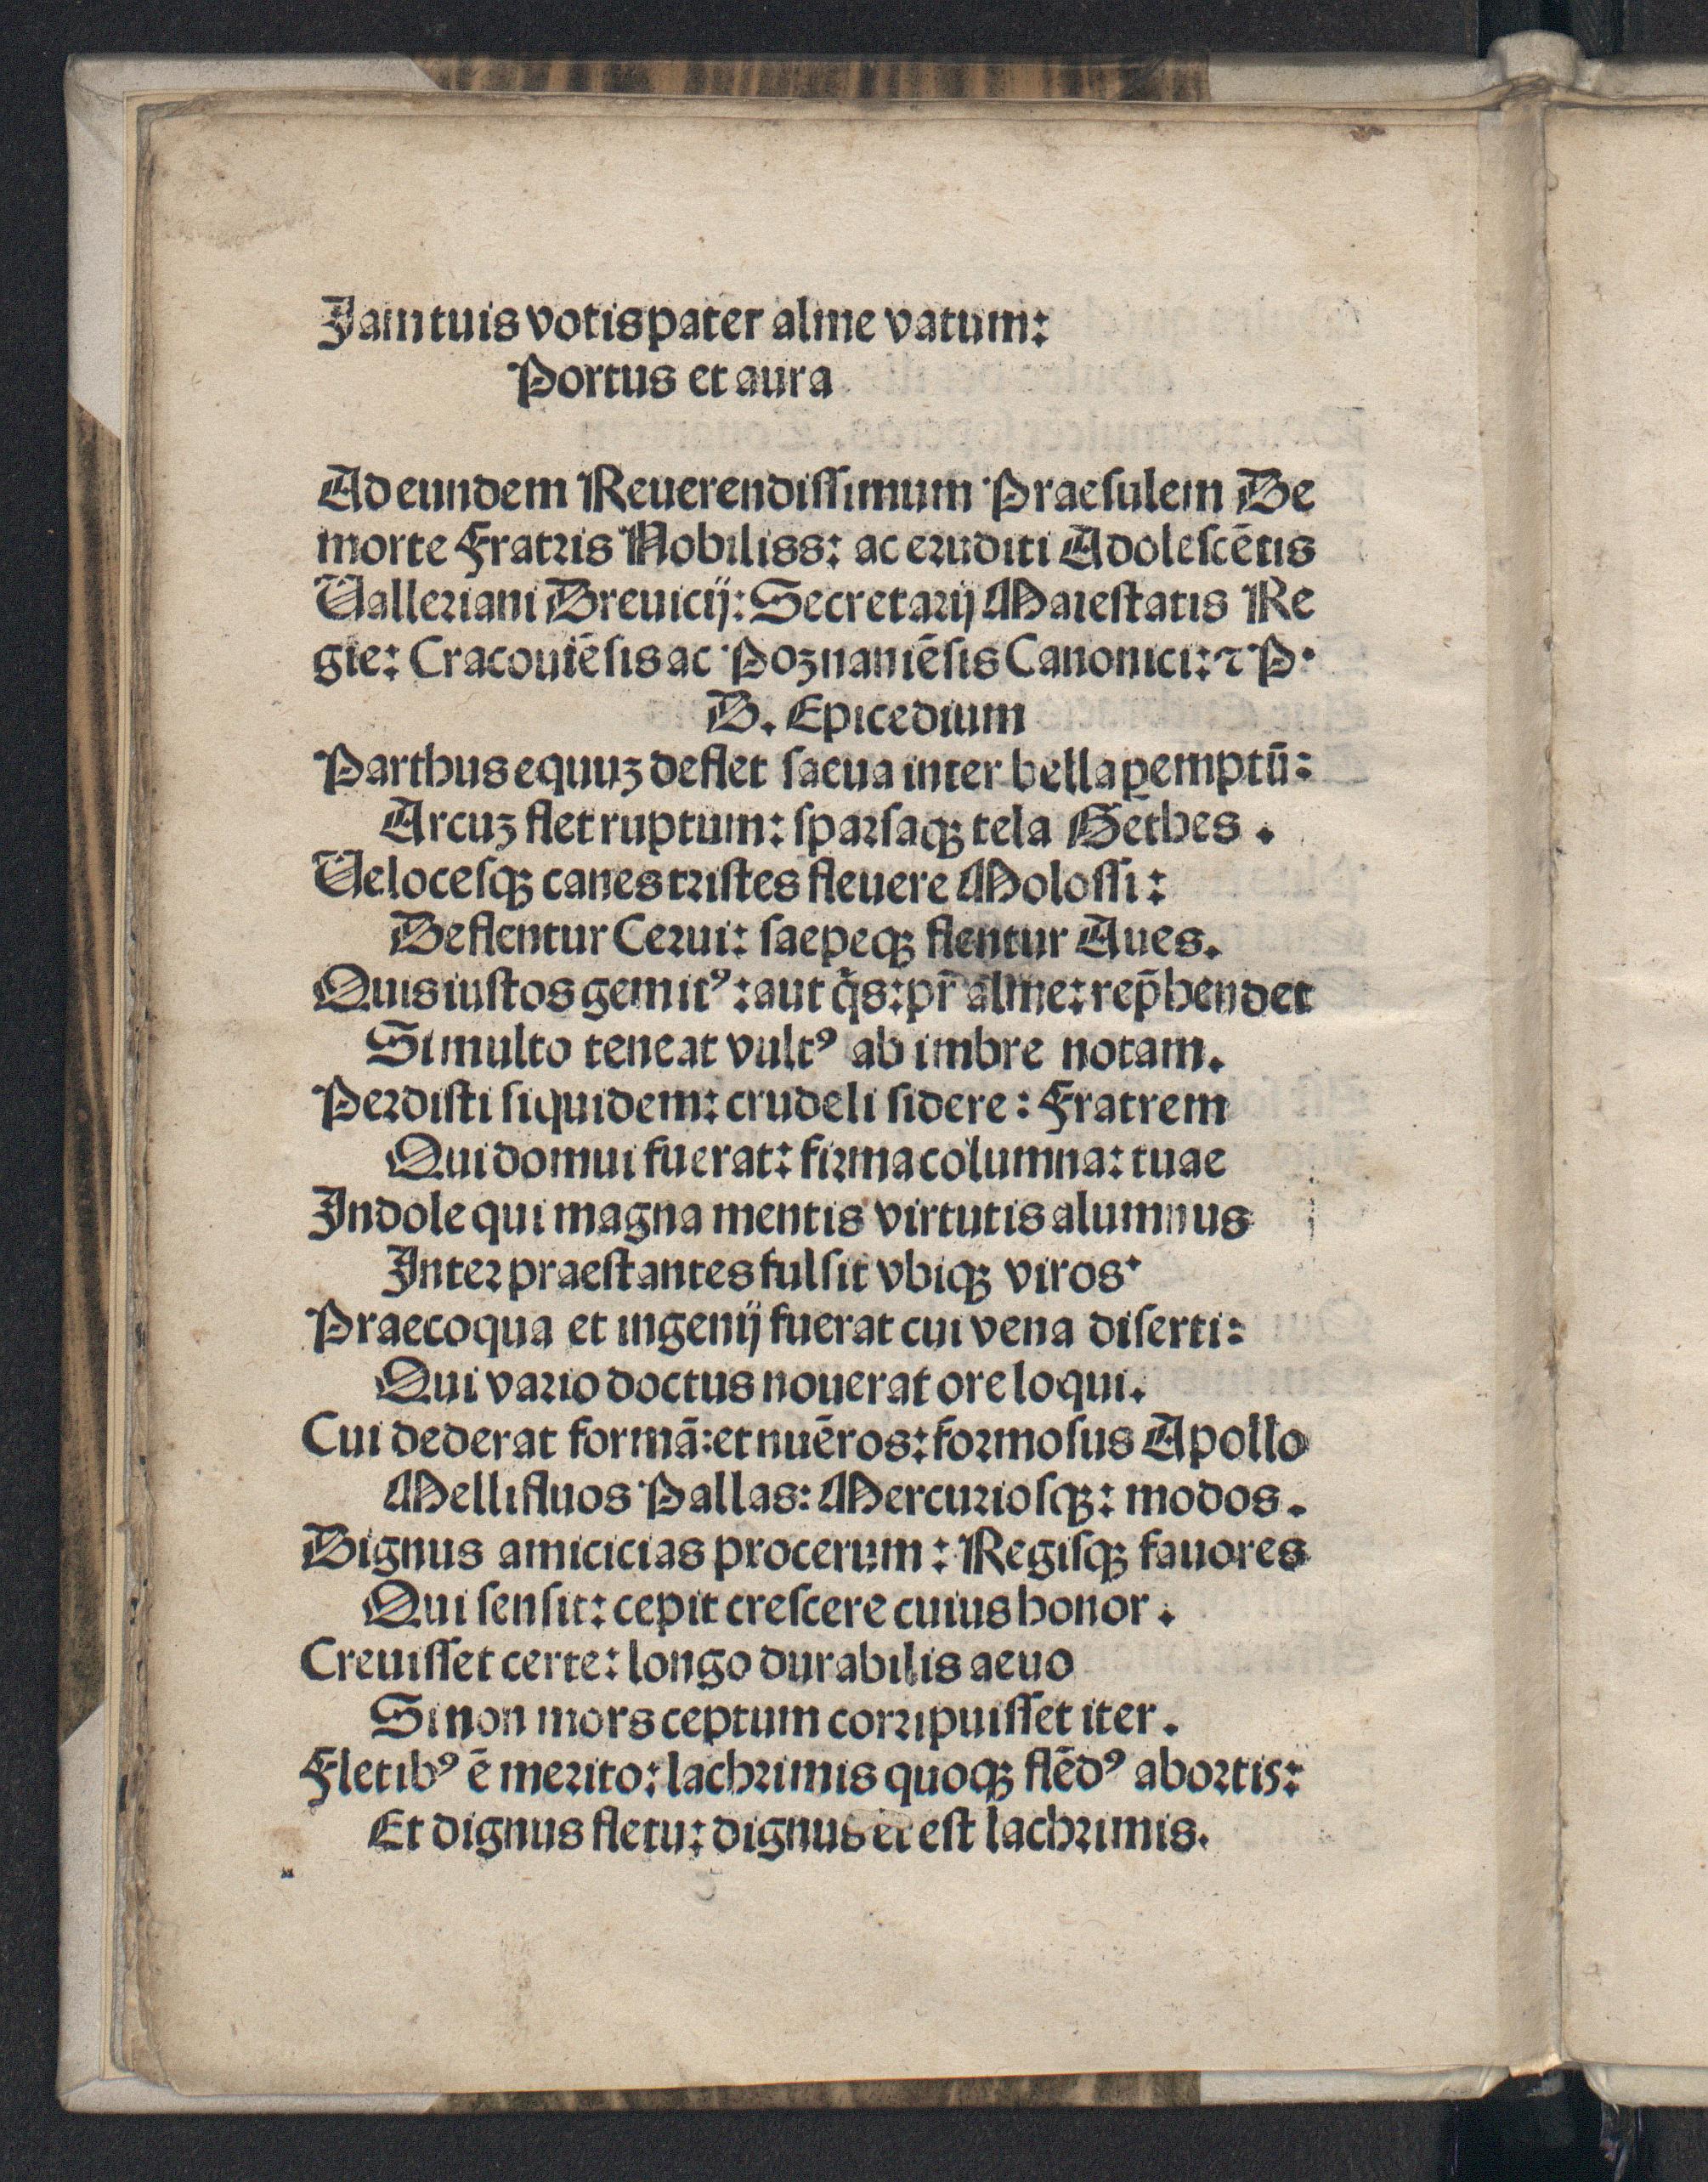 Jam tuis votis pater alme vatum:
Portus et aura
Ad eundem Reuerendissimum Praesulem De
morte Fratris Nobiliss: ac eruditi Adolescētis
Valleriani Breuicij: Secretarij Maiestatis Re
gie: Cracouiēsis ac Poznaniēsis Canonici: ⁊ P.
B. Epicedium
Parthus equuꝫ deflet saeua inter bella ꝑemptū:
Arcuꝫ flet ruptum: sparsaqꝫ tela Gethes.
Velocesqꝫ canes tristes fleuere Molossi:
Deflentur Cerui: saepeqꝫ flentur Aues.
Quis iustos gemitꝰ: aut q̄s: pr̄ alme: rep̄hendet
Si multo teneat vultꝰ ab imbre notam.
Perdisti siquidem: crudeli sidere: Fratrem
Qui domui fuerat: firma columna: tuae
Indole qui magna mentis virtutis alumnus
Inter praestantes fulsit vbiqꝫ viros.
Praecoqua et ingenij fuerat cui vena diserti:
Qui vario doctus nouerat ore loqui.
Cui dederat formā: et nuēros: formosus Apollo
Mellifluos Pallas: Mercuriosqꝫ: modos.
Dignus amicicias procerum: Regisqꝫ fauores
Qui sensit: cepit crescere cuius honor.
Creuisset certe: longo durabilis aeuo
Si non mors ceptum corripuisset iter.
Fletibꝰ ē merito: lachrimis quoqꝫ flēdꝰ abortis:
Et dignus fletu: dignus et est lachrimis.